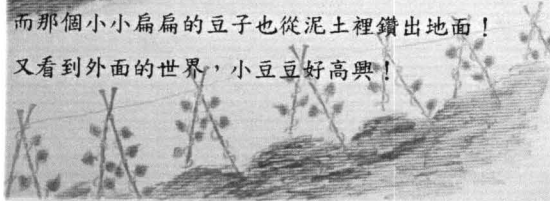 而那個小小扁扁的豆子也從泥土裡鑽出地面！
又看到外面的世界，小豆豆好高興！